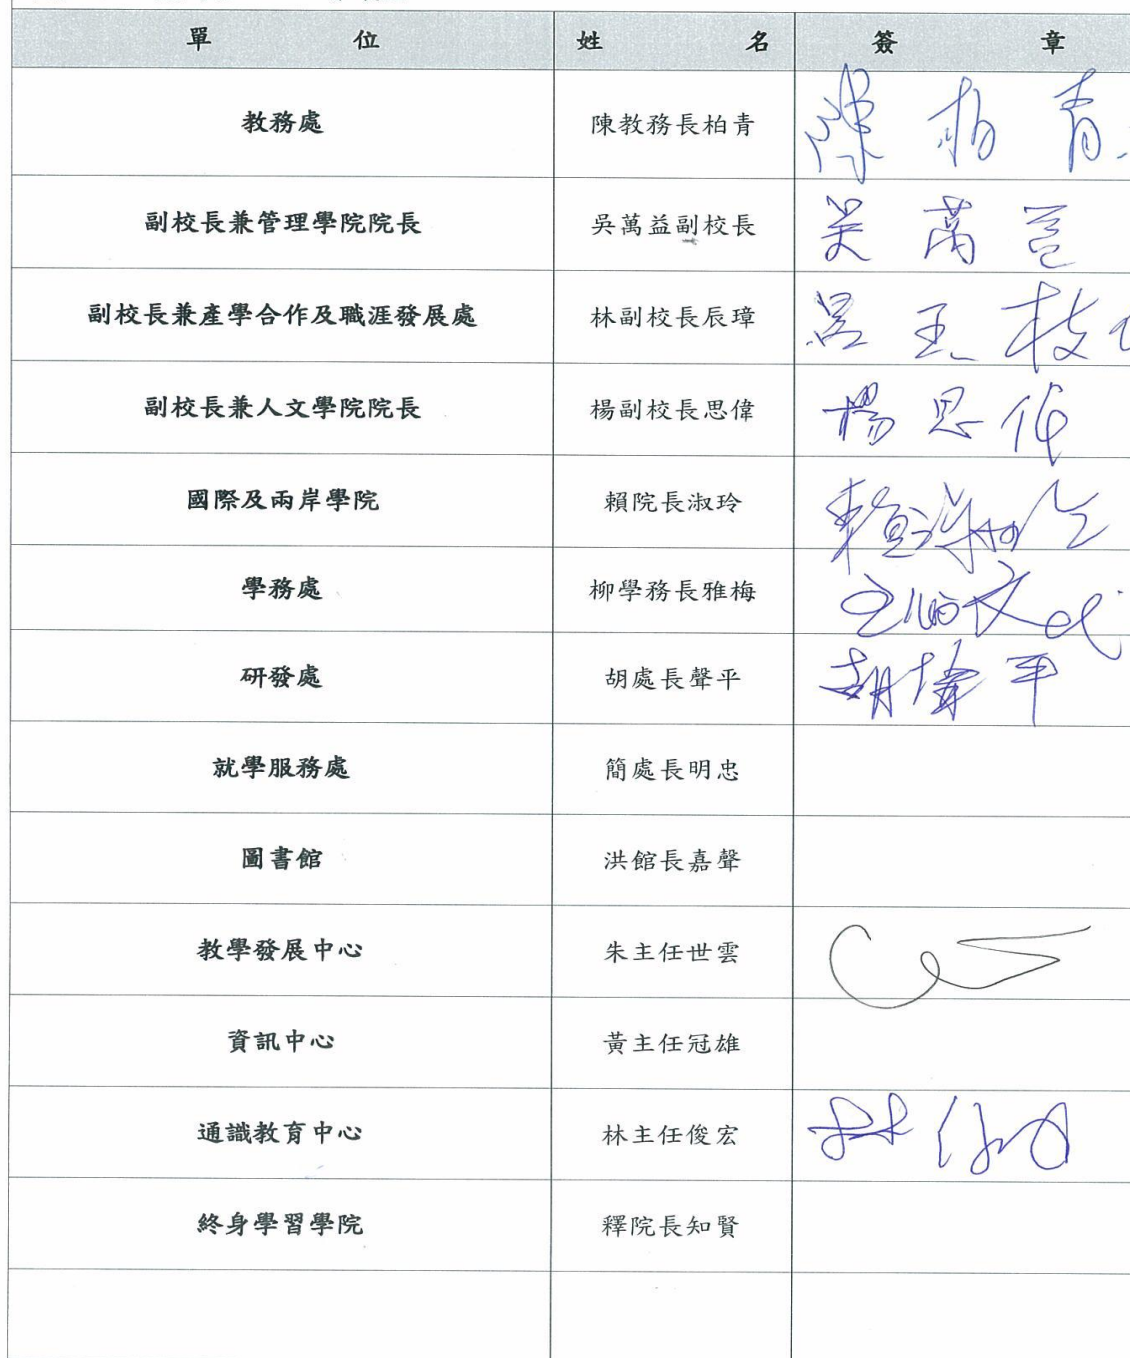 單 位 姓 名 簽 章
教務處 陳教務長柏青 陳柏青
副校長兼管理學院院長 吳萬益副校長 吳萬益
副校長兼產學合作及職涯發展處 林副校長辰璋 呂玉枝
副校長兼人文學院院長 楊副校長思偉 楊思偉
國際及兩岸學院 賴院長淑玲 賴淑玲
學務處 柳學務長雅梅
研發處 胡處長聲平 胡聲平
就學服務處 簡處長明忠
圖書館 洪館長嘉聲
教學發展中心 朱主任世雲
資訊中心 黃主任冠雄
通識教育中心 林主任俊宏 林俊宏
終身學習學院 釋院長知賢